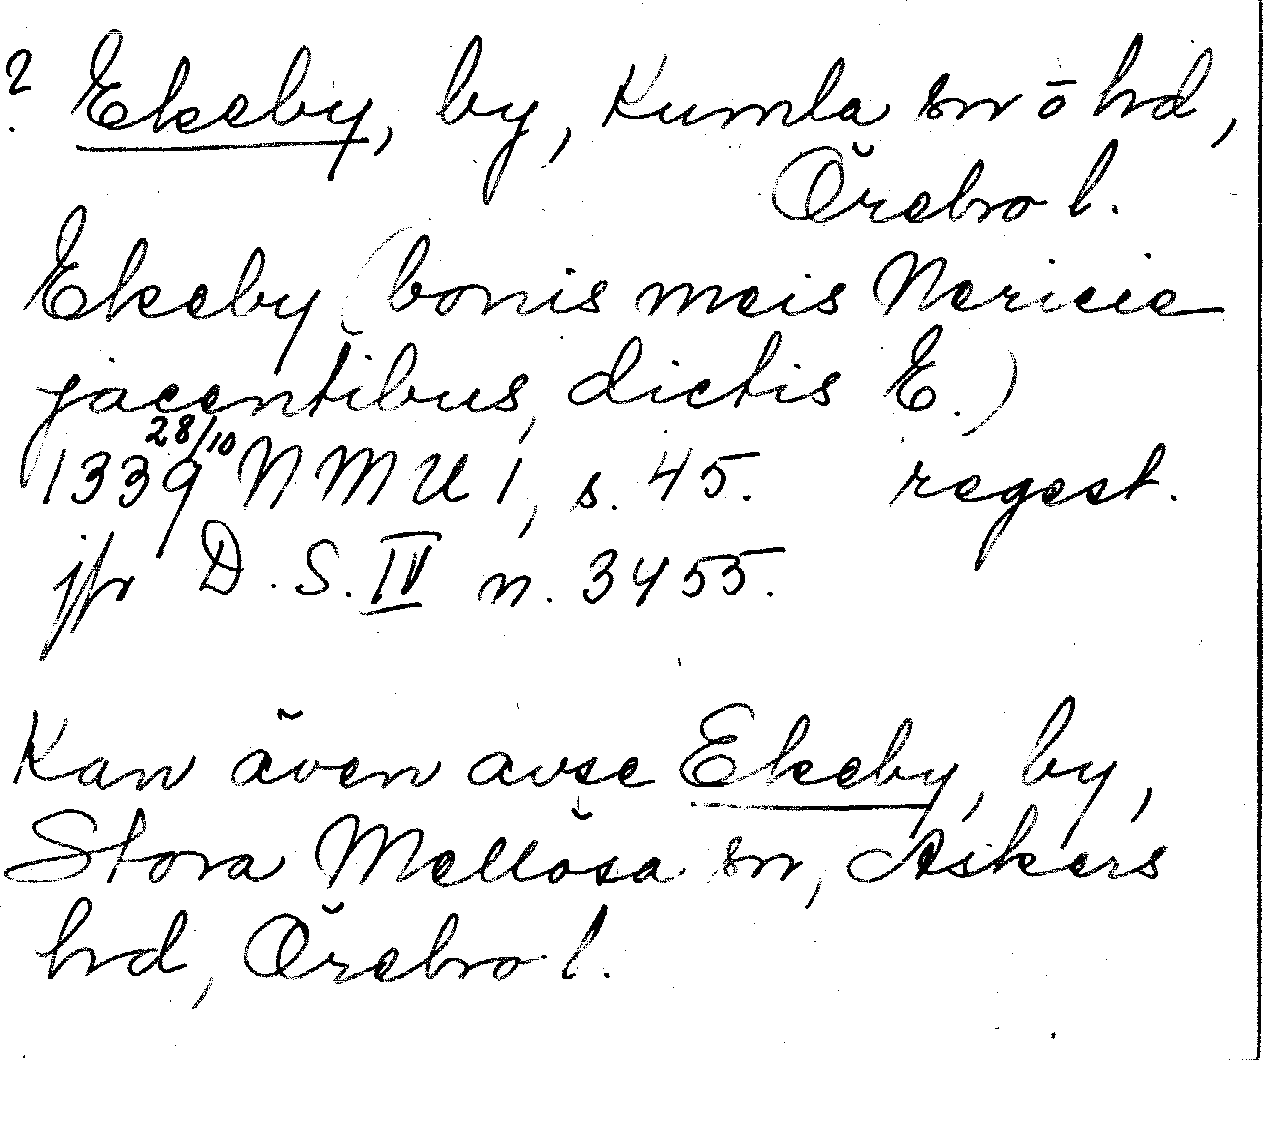 ? Ekeby, by, Kumla sn o hd,
Örebro l.
Ekeby (bonis meis Nericie
jacentibus, dictis E.)
1339 28/10 NMU 1, s. 45. regest.
jfr D.S. IV n. 3455.
Kan även avse Ekeby, by,
Stora Mellösa sn, Askers
hd, Örebro l.